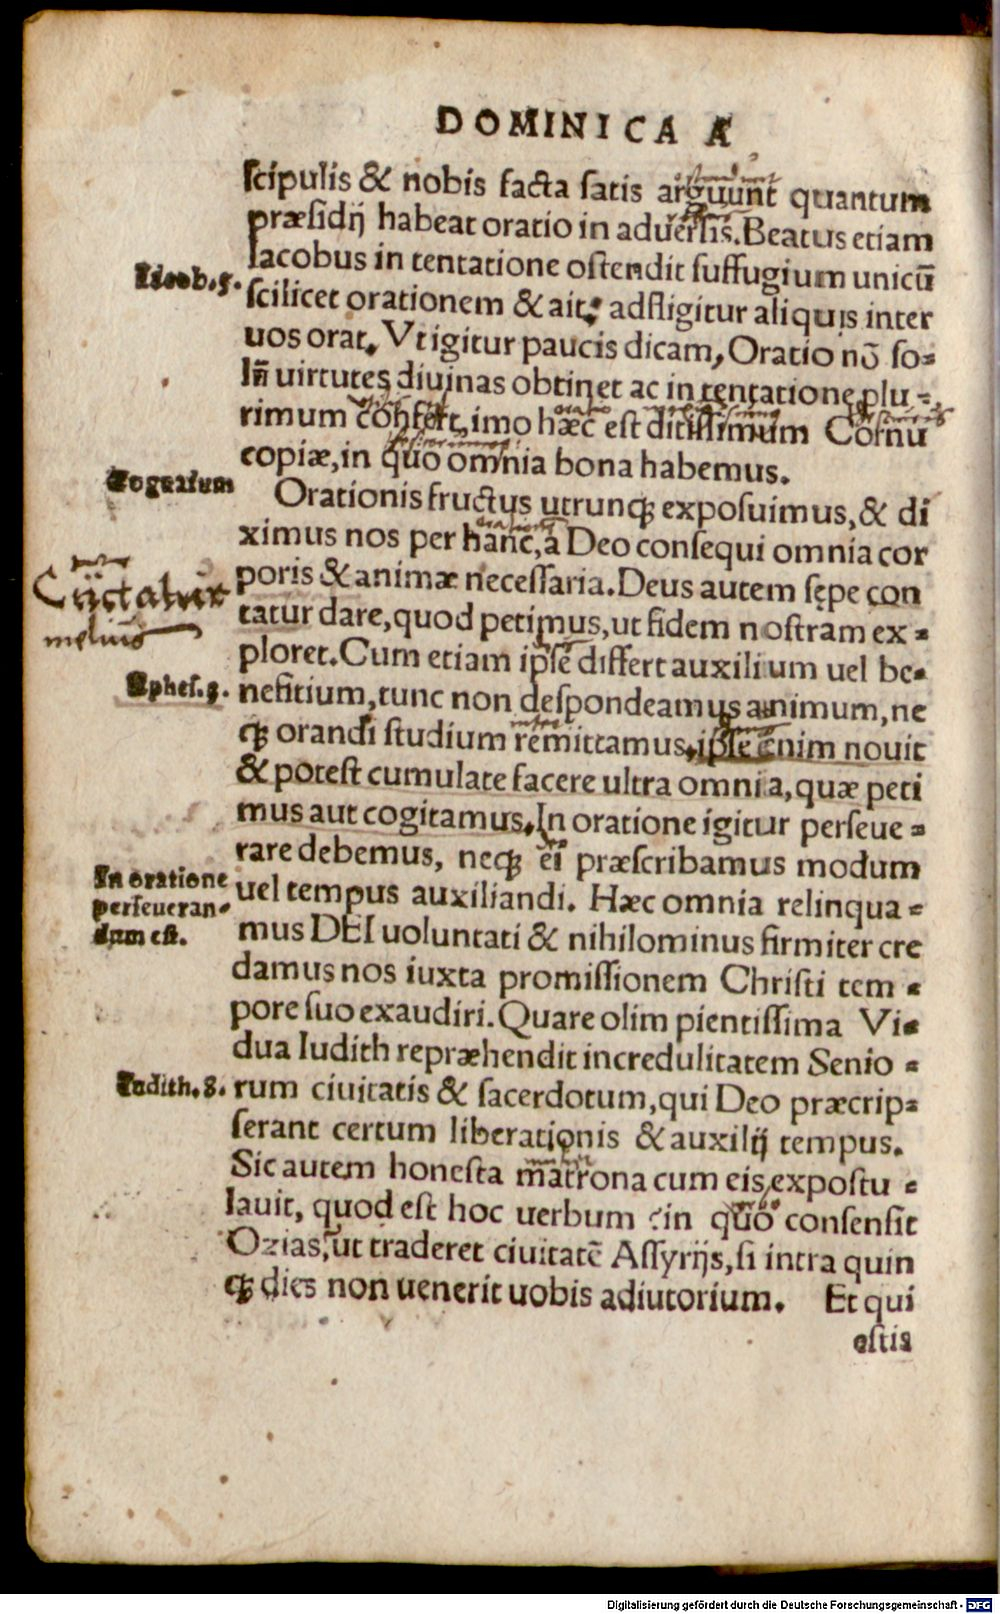 DOMINICA A
scipulis & nobis facta satis arguunt quantum
præsidij habeat oratio in aduersis. Beatus etiam
Iacobus in tentatione ostendit suffugium unicū
Iacob. 5.
scilicet orationem & ait: adfligitur aliquis inter
uos orat. Vt igitur paucis dicam, Oratio nō so=
lū uirtutes diuinas obtinet ac in tentatione plu=
rimum confert, imo hæc est ditissimum Cornu
copiæ, in quo omnia bona habemus.
Togatum
Orationis fructus utrunq; exposuimus, & di
ximus nos per hanc, a Deo consequi omnia cor
poris & animæ necessaria. Deus autem sępe con
Cūctatur
tatur dare, quod petimus, ut fidem nostram ex=
melius
ploret. Cum etiam ipse differt auxilium uel be=
Ephes. 3.
nefitium, tunc non despondeamus animum, ne
q; orandi studium remittamus, ipse enim nouit
& potest cumulate facere ultra omnia, quæ peti
mus aut cogitamus. In oratione igitur perseue=
rare debemus, neq; ei præscribamus modum
In oratione
perseueran=
dum est.
uel tempus auxiliandi. Hæc omnia relinqua=
mus DEI uoluntati & nihilominus firmiter cre
damus nos iuxta promissionem Christi tem=
pore suo exaudiri. Quare olim pientissima Vi=
dua Iudith repræhendit incredulitatem Senio=
Iudith. 8.
rum ciuitatis & sacerdotum, qui Deo præcrip=
serant certum liberationis & auxilij tempus.
Sic autem honesta matrona cum eis expostu=
lauit, quod est hoc uerbum in quo consensit
Ozias, ut traderet ciuitatē Assyrijs, si intra quin
q; dies non uenerit uobis adiutorium. Et qui
estis
Digitalisierung gefördert durch die Deutsche Forschungsgemeinschaft - DFG